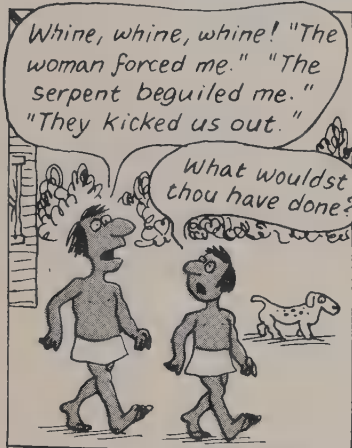 Whine, whine, whine! "The
woman forced me." "The
serpent beguiled me."
"They kicked us out."
What wouldst
thou have done?